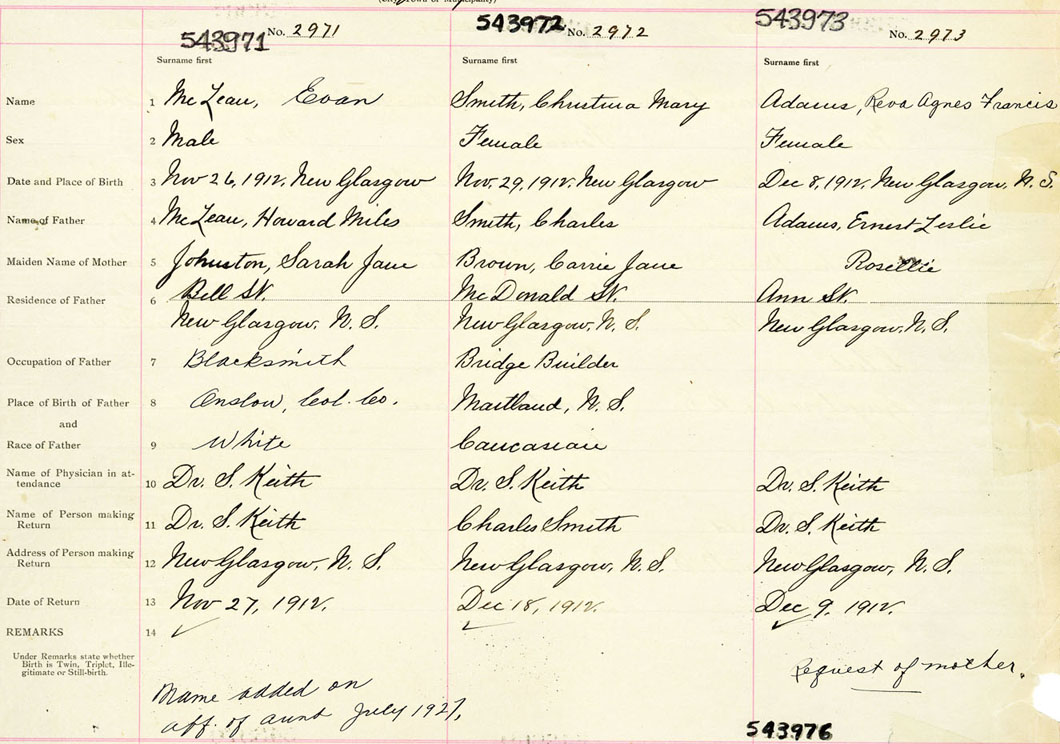 (City, Town or Municipality)
543971 No. 2971 543972 No. 2972 543973 No. 2973
Surname first Surname first Surname first
Name 1 McLean, Evan Smith, Christina Mary Adams, Reva Agnes Francis
Sex 2 Male Female Female
Date and Place of Birth 3 Nov 26, 1912, New Glasgow Nov. 29, 1912. New Glasgow Dec 8, 1912, New Glasgow, N. S.
Name of Father 4 McLean, Howard Miles Smith, Charles Adams, Ernest Leslie
Maiden Name of Mother 5 Johnston, Sarah Jane Brown, Carrie Jane Rosellie
Residence of Father 6 Bell St. McDonald St. Ann St.
New Glasgow, N. S. New Glasgow, N. S. New Glasgow, N. S.
Occupation of Father 7 Blacksmith Bridge Builder
Place of Birth of Father 8 Onslow, Col. Co. Maitland, N. S.
and
Race of Father 9 White Caucasian
Name of Physician in at-
tendance 10 Dr. S. Keith Dr. S. Keith Dr. S. Keith
Name of Person making
Return 11 Dr. S. Keith Charles Smith Dr. S. Keith
Address of Person making
Return 12 New Glasgow, N. S. New Glasgow, N. S. New Glasgow, N. S.
Date of Return 13 Nov 27, 1912. Dec 18, 1912. Dec 9, 1912.
REMARKS 14 ✓ ✓ ✓
Under Remarks state whether
Birth is Twin, Triplet, Ille-
gitimate or Still-birth.
Request of mother.
Name added on
aff. of aunt July 1927.
543976